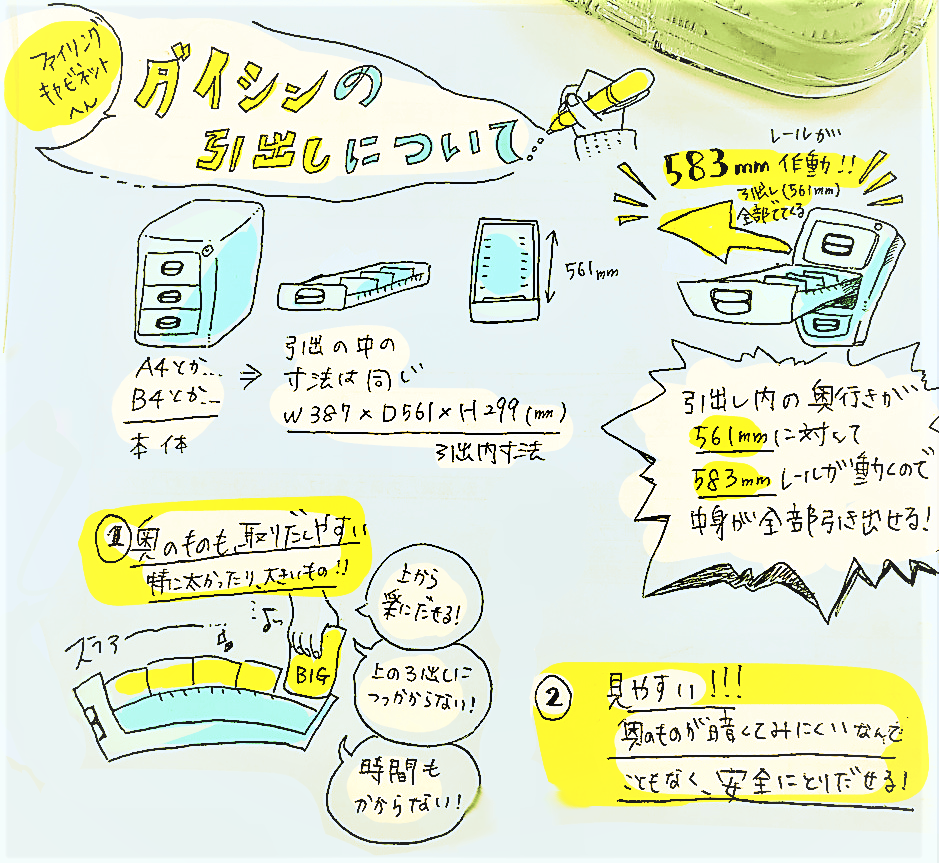 ファイリング
キャビネット
へん
ダイシンの
引出しについて
レールが
583mm 作動!!
引出し(561mm)
全部でてくる
561mm
A4とか…
B4とか…
本体
⇒
引出の中の
寸法は同じ
W387×D561×H299(mm)
引出内寸法
引出し内の奥行きが
561mmに対して
583mmレールが動くので
中身が全部引き出せる!
① 奥のものも、取りだしやすい
特に太かったり、大きいもの!!
ズラァー
BIG
上から
楽にだせる!
上の引出しに
つっかからない!
時間も
かからない!
② 見やすい!!!
奥のものが暗くてみにくいなんて
こともなく、安全にとりだせる!